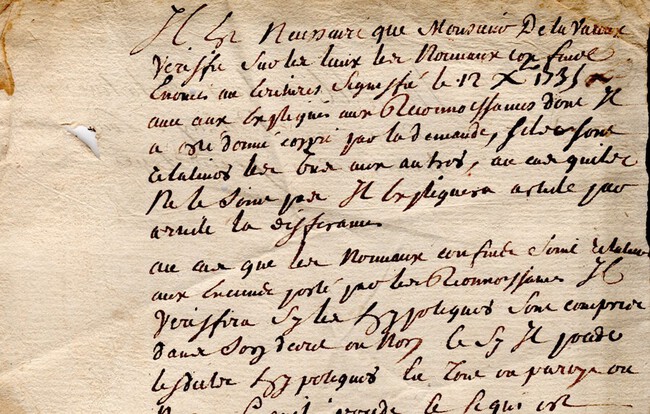 Il Est Necessaire que Monsieur De la Varenne
Veriffie Sur les lieux les Nouveaux confins
Enoncés au Escritures Signiffié le 12 X 1735
avec ceux Expliqués aux Reconnoissances dont Il
a esté donné coppie par la demande, Si les sont
relatives les unes aux autres, au cas quiles
Ne le Soint pas Il Expliquera article par
article la differance
au cas que les Nouveaux confins Soint relatives
aux Enciens porté par les Reconnoissances Il
Veriffira Sy les hyppoteques Sont comprise
dans Son decret ou Non le Sy Il possede
lesdites hyppoteques En Tout ou partye ou